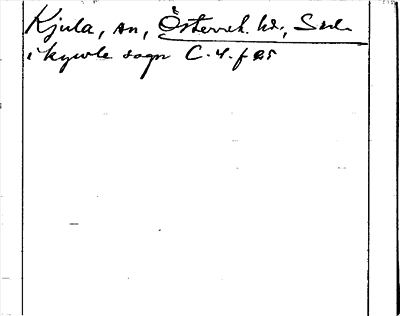 Kjula, sn, Österrek. hd., Södl.
i kywle sogn C. 4. f 25